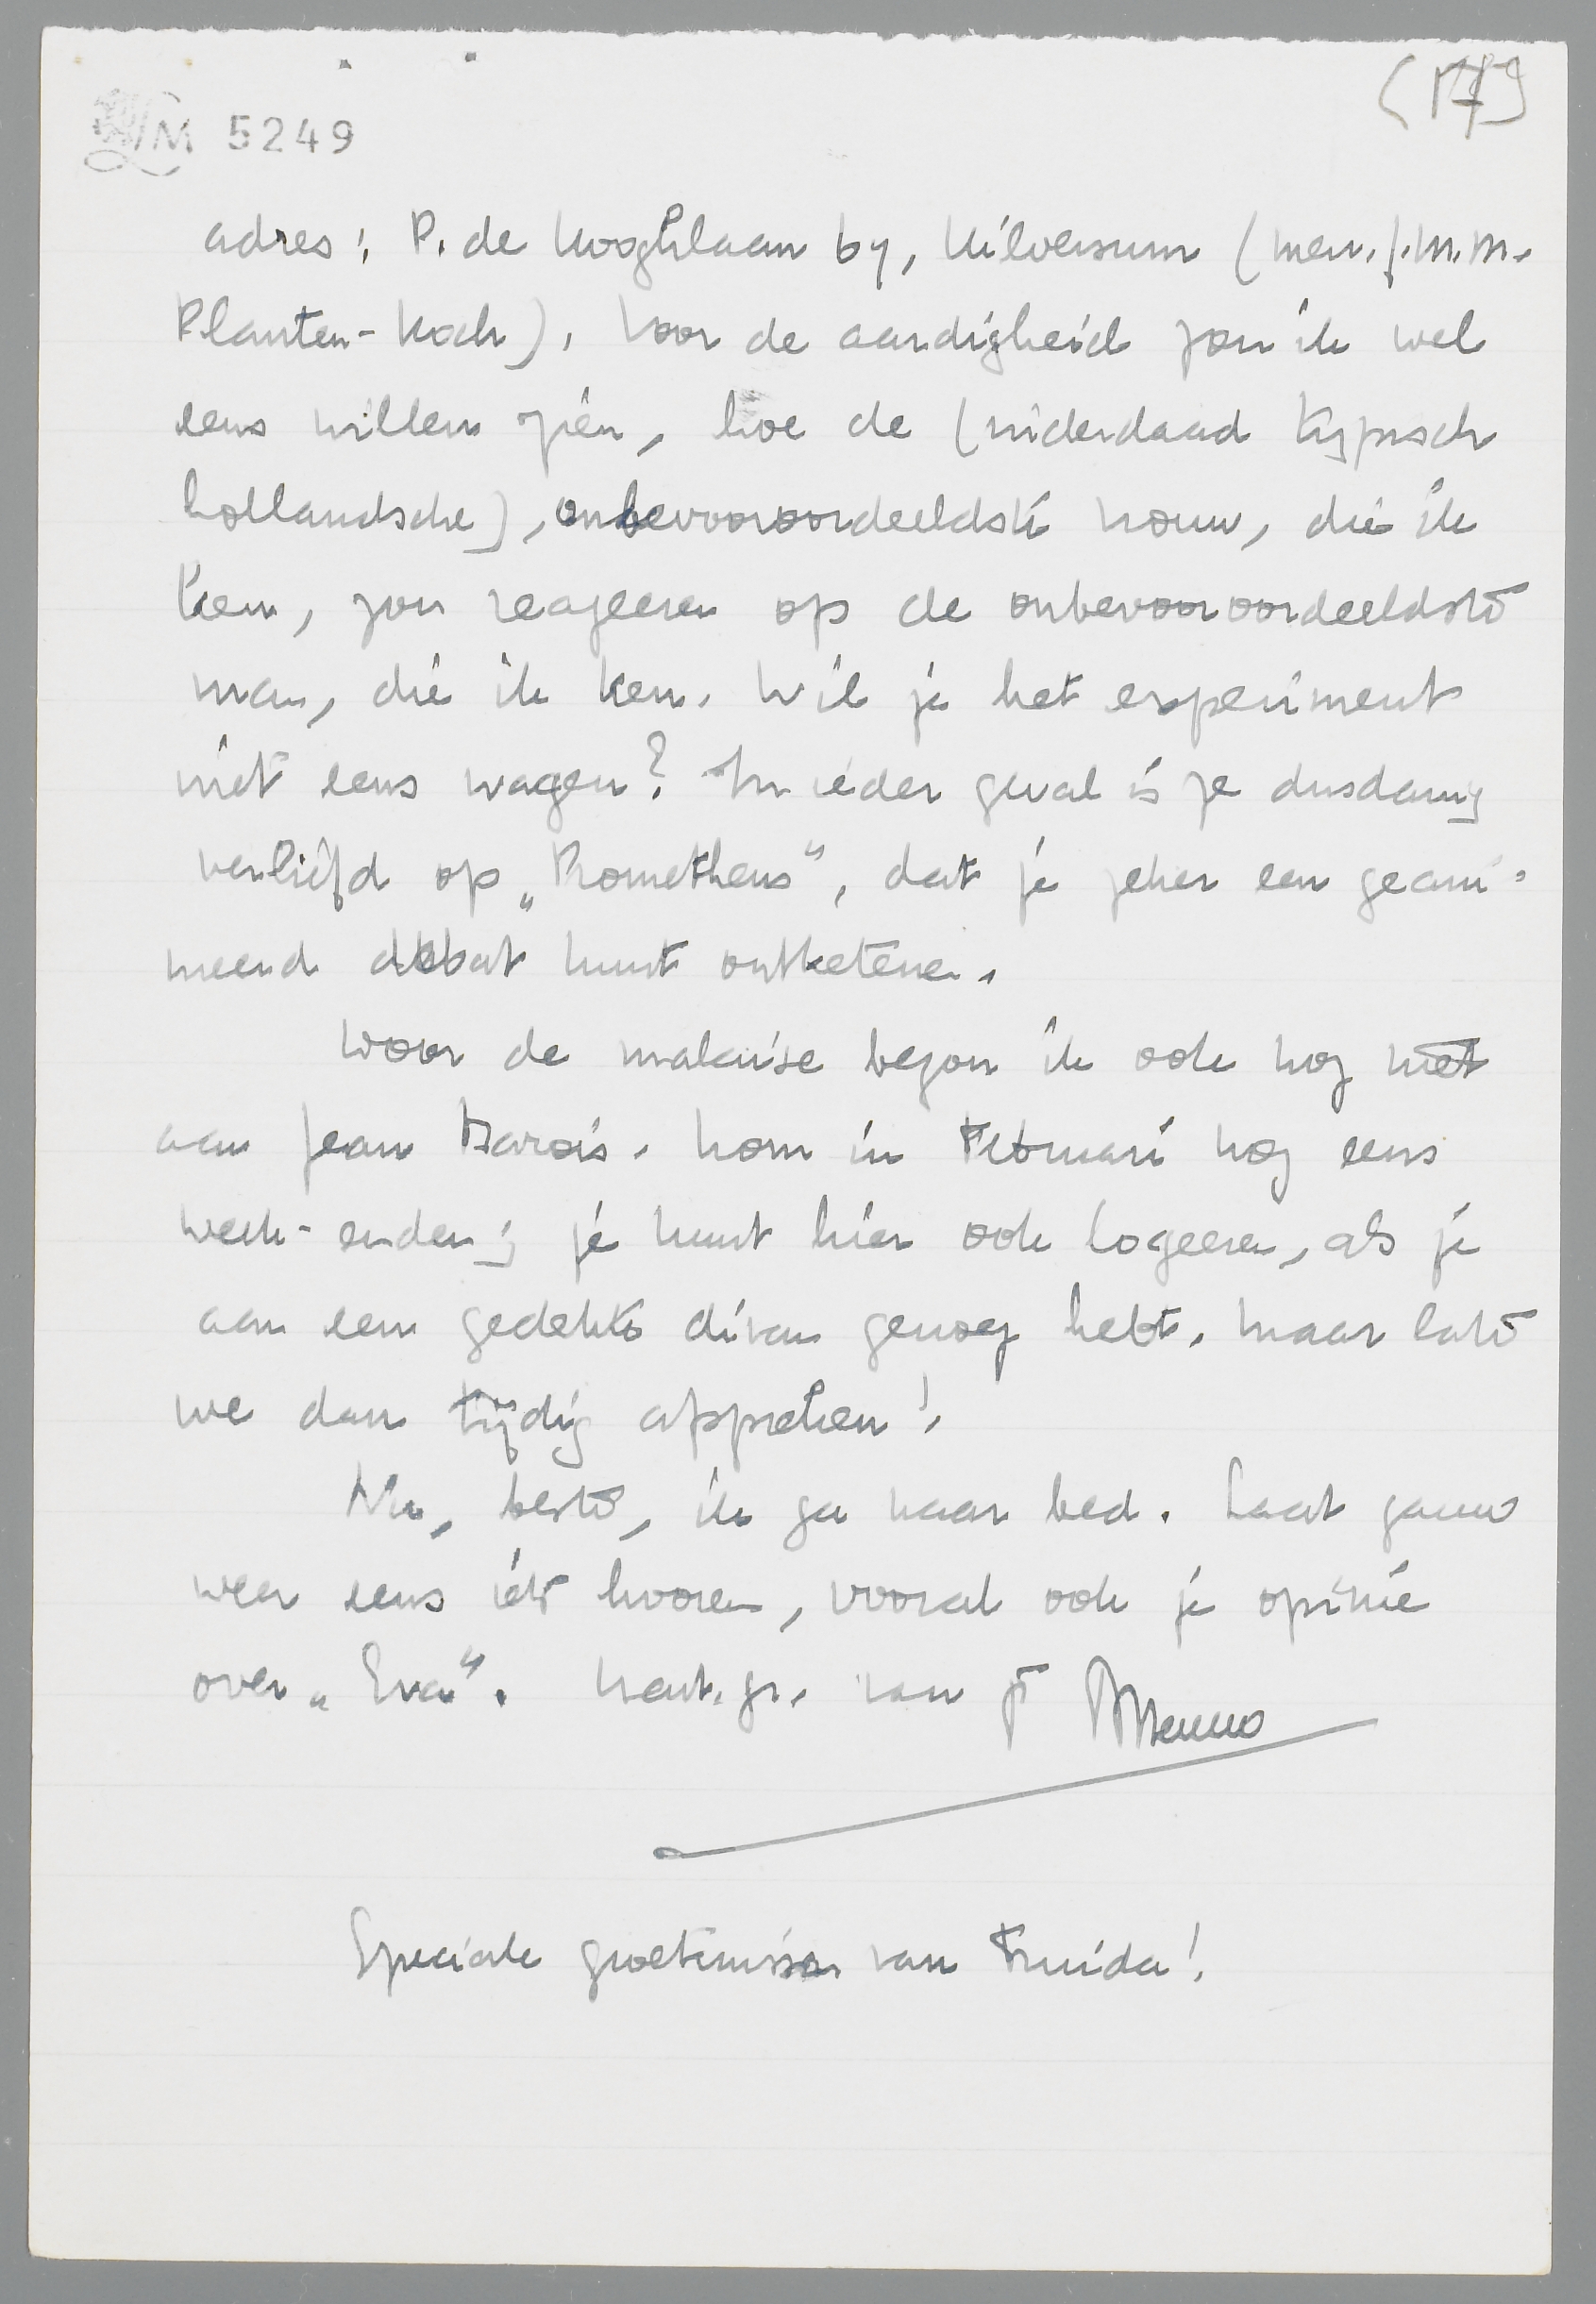 (17)
LM 5249
adres: P. de Hooghlaan 67, Hilversum (mevr. J.M.M.
Planten-Koch). Voor de aardigheid zou ik wel
eens willen zien, hoe de (inderdaad typisch
hollandsche), onbevooroordeeldste vrouw, die ik
ken, zou reageeren op de onbevooroordeeldste
man, die ik ken. Wil je het experiment
niet eens wagen? In ieder geval is ze dusdanig
verliefd op „Prometheus”, dat je zeker een geani-
meerd debat kunt ontketenen.
Door de malaise begon ik ook nog niet
aan Jean Barois. Kom in Februari nog eens
week-enden; je kunt hier ook logeeren, als je
aan een gedekte divan genoeg hebt. Maar laten
we dan tijdig afspreken!
Nu, beste, ik ga naar bed. Laat gauw
weer eens iets hooren, vooral ook je opinie
over „Eva”. Hart. gr. van je Menno
Speciale groetenissen van Truida!